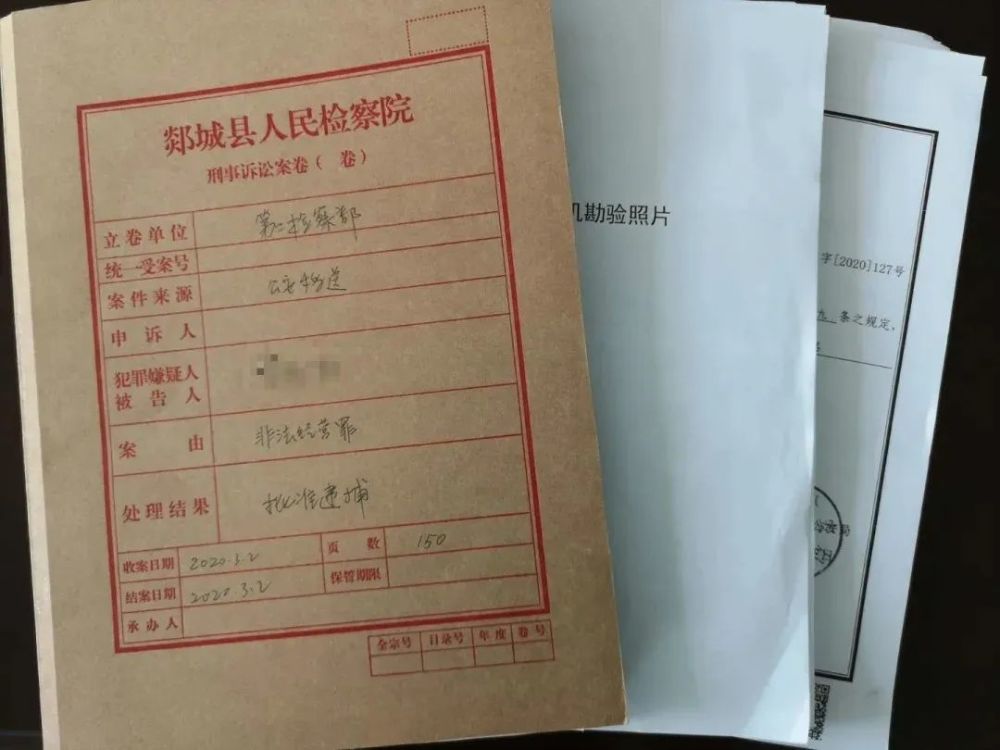 郯城县人民检察院
刑事诉讼案卷（ 卷）
立卷单位 第二检察部
统一受案号
案件来源 公安移送
申诉人
犯罪嫌疑人
被告人
案由 非法经营罪
处理结果 批准逮捕
收案日期 2020.3.2 页数 150
结案日期 2020.3.2 保管期限
承办人
全宗号 目录号 年度 卷号
机勘验照片
字[2020]127号
九 条之规定，